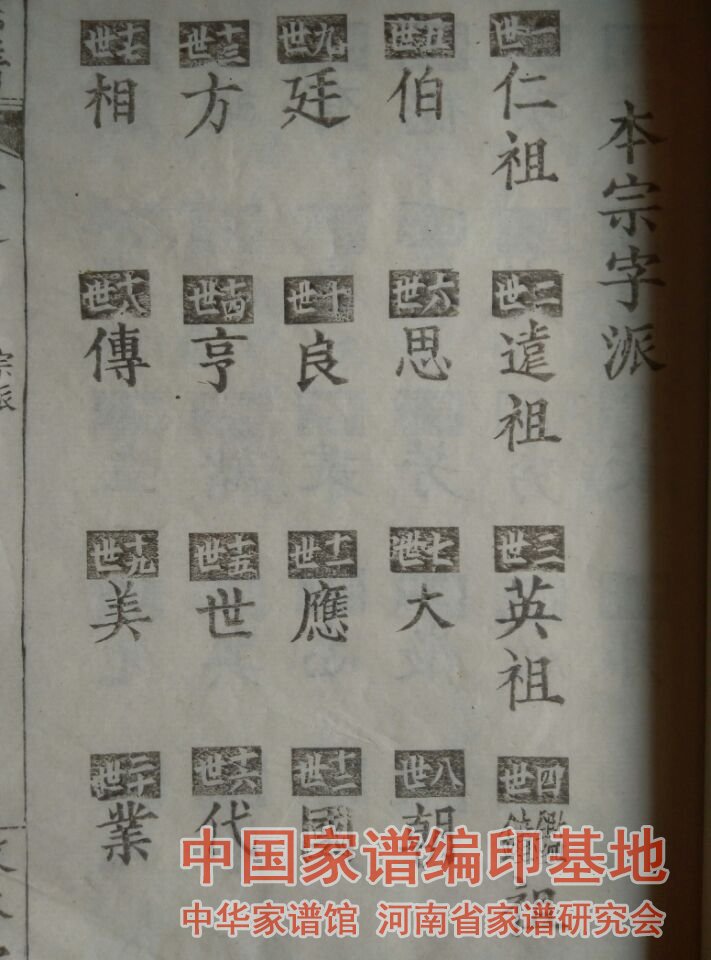 本宗字派
一世
仁祖
二世
遠祖
三世
英祖
四世
祖
五世
伯
六世
思
七世
大
八世
朝
九世
廷
十世
良
十一世
應
十二世
國
十三世
方
十四世
亨
十五世
世
十六世
代
十七世
相
十八世
傳
十九世
美
二十世
業
宗派
中国家谱编印基地
中华家谱馆 河南省家谱研究会